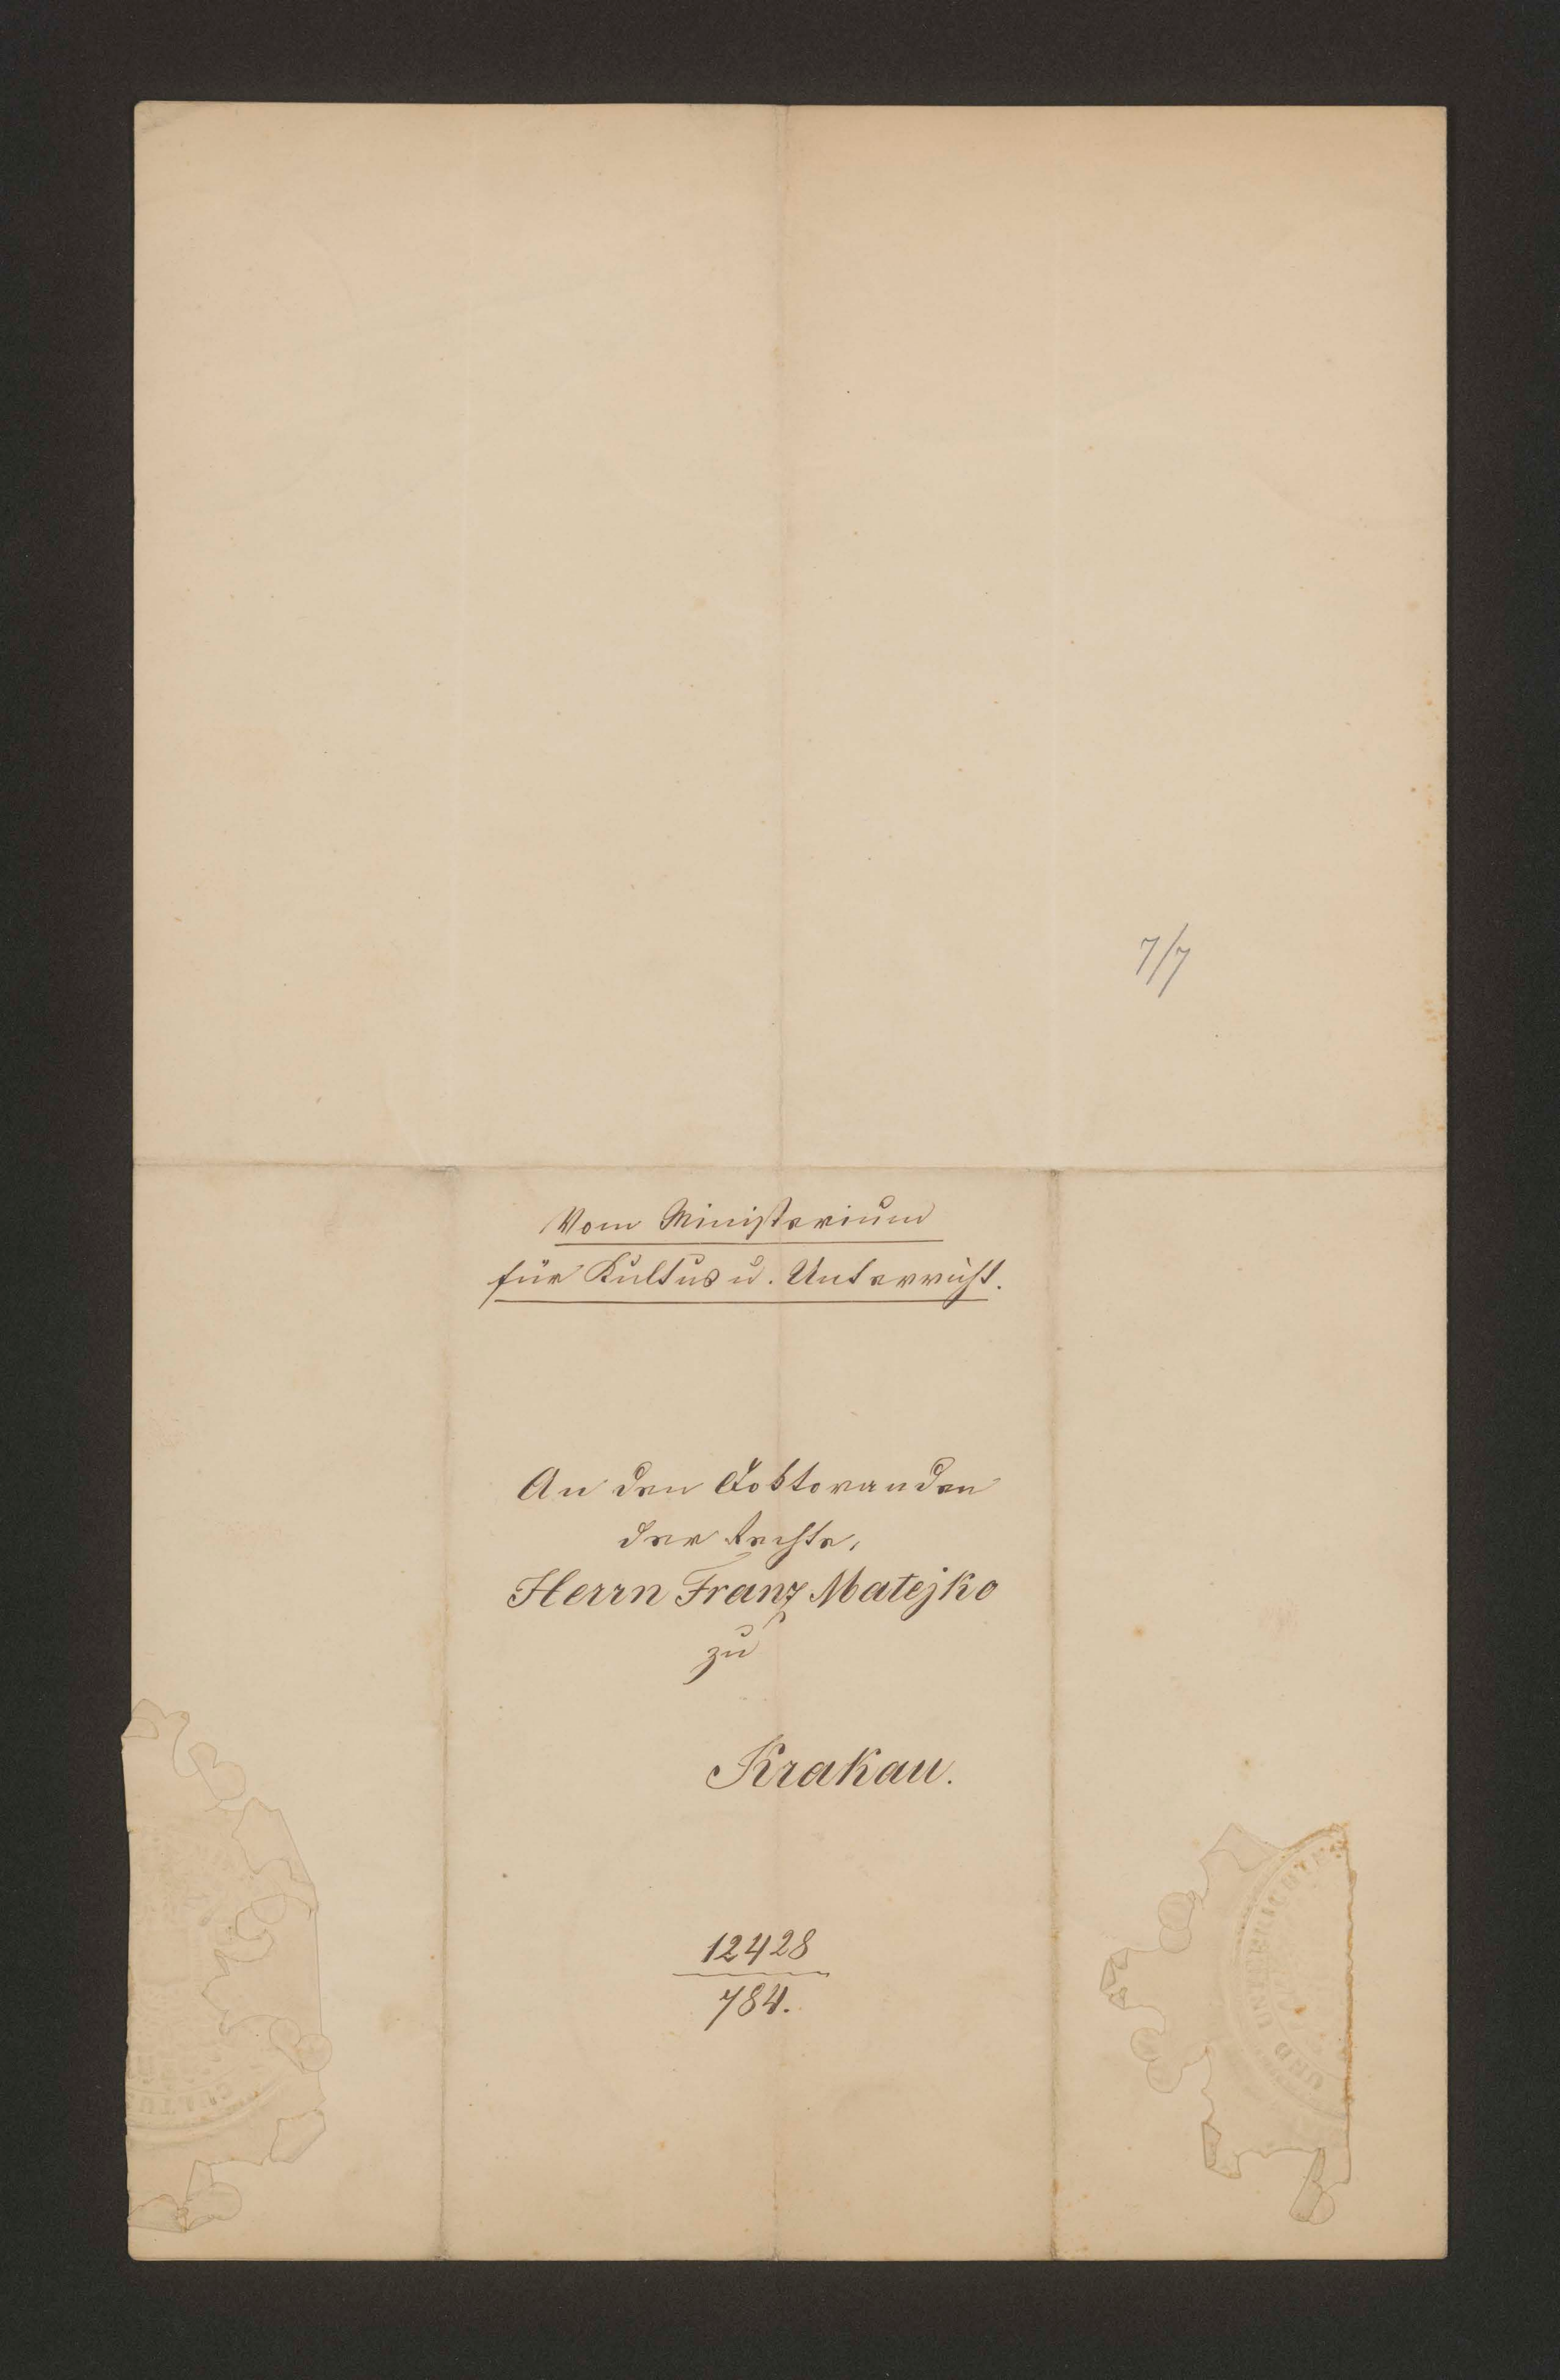 7/7
Vom Ministerium
für Kultus u. Unterricht.
An den Doktoranden
der Rechte,
Herrn Franz Matejko
zu
Krakau.
12428
784.
CULTU
UND UNTERRICHT